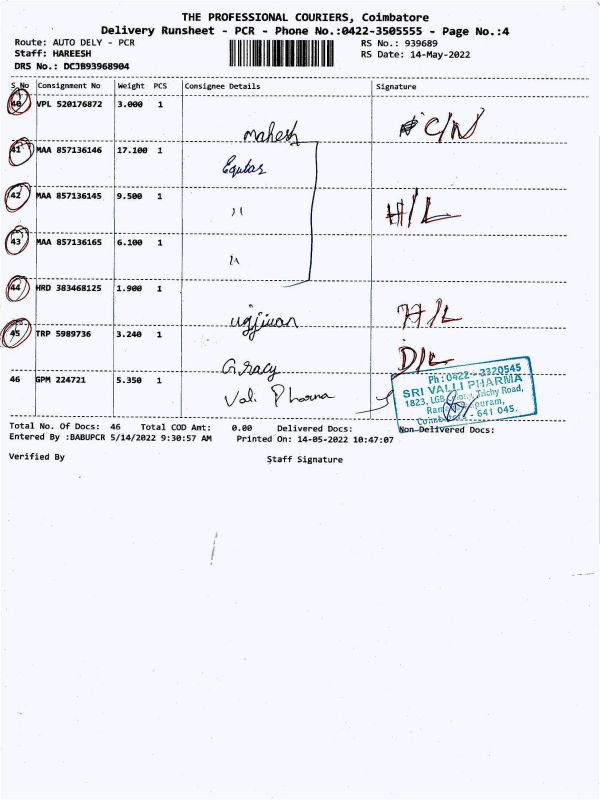 THE PROFESSIONAL COURIERS, Coimbatore
Delivery Runsheet - PCR - Phone No.:0422-3505555 - Page No.:4
Route: AUTO DELY - PCR RS No.: 939689
Staff: HAREESH RS Date: 14-May-2022
DRS No.: DCJB93968904
S No Consignment No Weight PCS Consignee Details Signature
40 VPL 520176872 3.000 1
mahesh C/N
41 MAA 857136146 17.100 1 Equitas
42 MAA 857136145 9.500 1 〃 H/L
43 MAA 857136165 6.100 1 〃
44 HRD 383468125 1.900 1
ujjivan H/L
45 TRP 5989736 3.240 1
Gracy D/L
46 GPM 224721 5.350 1 Vali Pharma
Ph : 0422 - 2320545
SRI VALLI PHARMA
1823, LGB Trichy Road,
puram,
641 045.
Total No. Of Docs: 46 Total COD Amt: 0.00 Delivered Docs: Non Delivered Docs:
Entered By :BABUPCR 5/14/2022 9:30:57 AM Printed On: 14-05-2022 10:47:07
Verified By Staff Signature